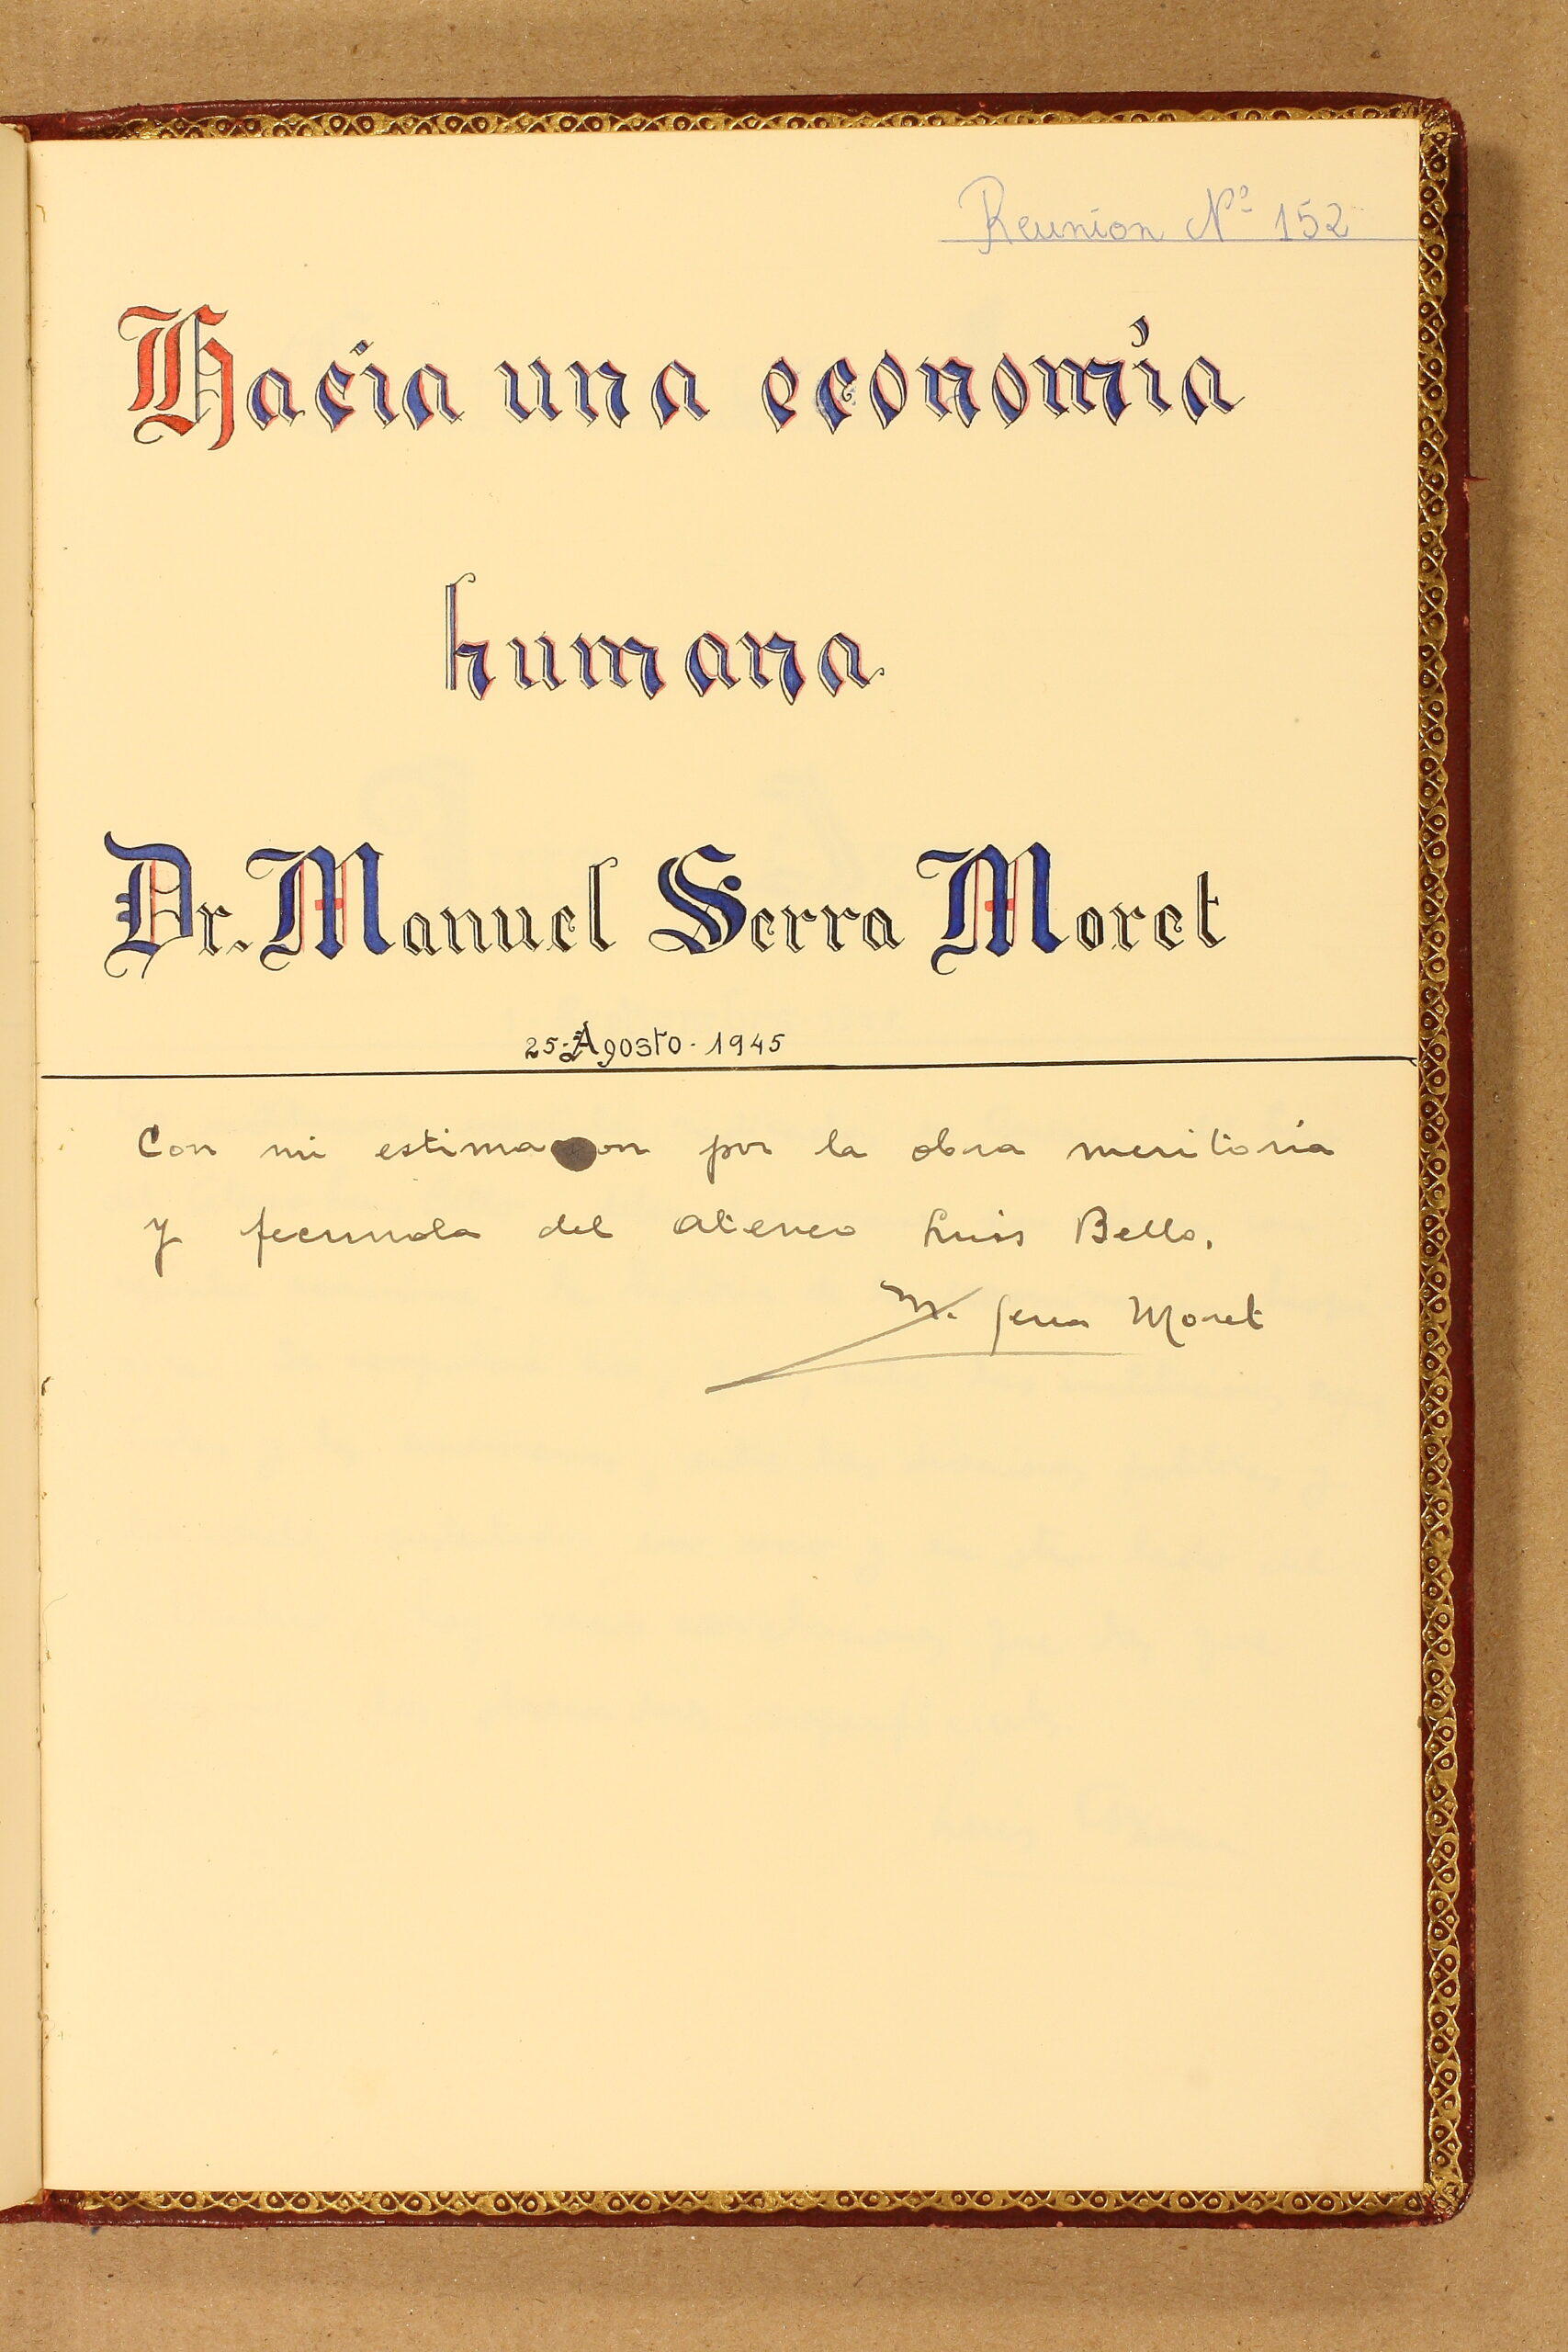 Reunion Nº 152
Hacia una economía
humana
Dr. Manuel Serra Moret
25-Agosto-1945
Con mi estimacion por la obra meritoria
y fecunda del Ateneo Luis Bello.
M. Serra Moret